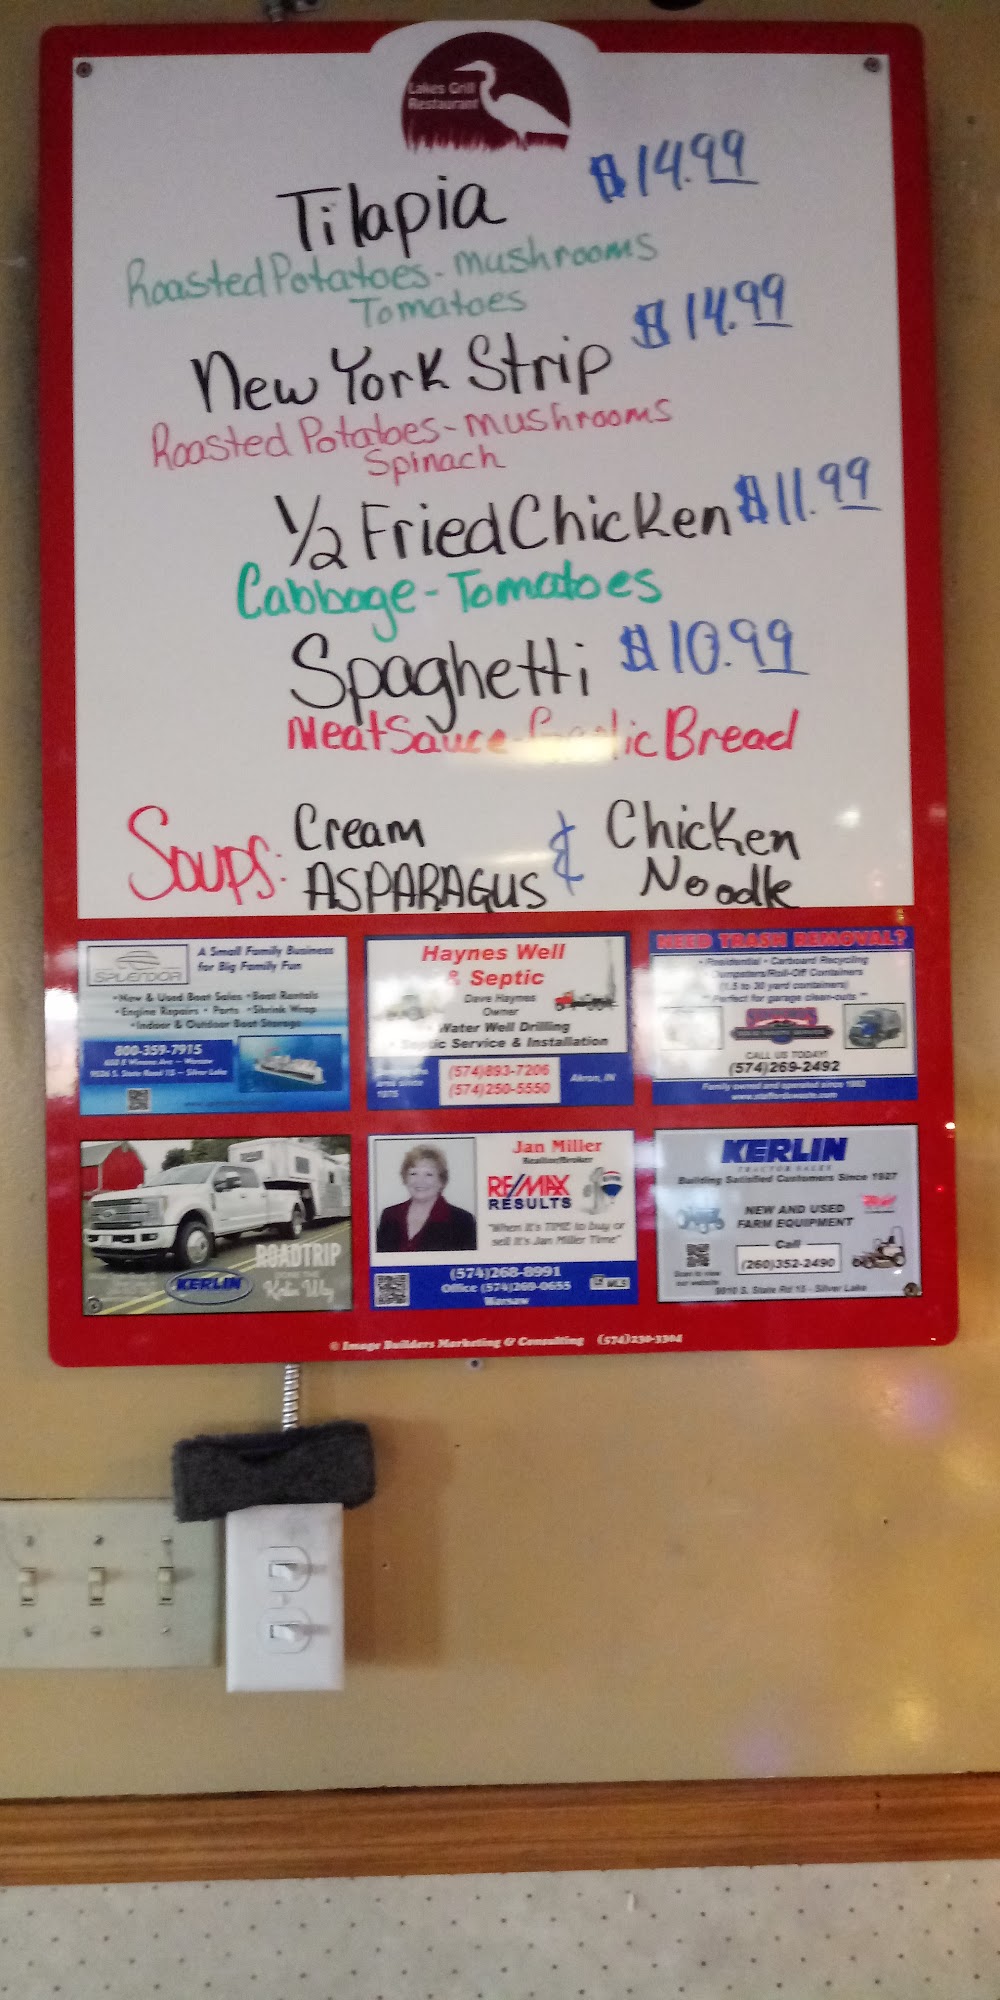 Lakes Grill
Restaurant
Tilapia $14.99
Roasted Potatoes - Mushrooms
Tomatoes
New York Strip $14.99
Roasted Potatoes - Mushrooms
Spinach
1/2 Fried Chicken $11.99
Cabbage - Tomatoes
Spaghetti $10.99
Meat Sauce - Garlic Bread
Soups: Cream & Chicken
ASPARAGUS Noodle
SPLENDOR
A Small Family Business
for Big Family Fun
• New & Used Boat Sales • Boat Rentals
• Engine Repairs • Parts • Shrink Wrap
• Indoor & Outdoor Boat Storage
800-359-7915
Warsaw
9526 S. State Road 15 – Silver Lake
Haynes Well
& Septic
Dave Haynes
Owner
• Water Well Drilling
• Septic Service & Installation
(574)893-7206
(574)250-5550
Akron, IN
NEED TRASH REMOVAL?
• Residential • Carboard Recycling
Dumpsters/Roll-Off Containers
(1.5 to 30 yard containers)
** Perfect for garage clean-outs **
CALL US TODAY!
(574)269-2492
ROADTRIP
KERLIN
Jan Miller
Realtor/Broker
RE/MAX
RESULTS
"When it's TIME to buy or
sell it's Jan Miller Time"
(574)268-8991
Office (574)269-0655
Warsaw
MLS
KERLIN
TRACTOR SALES
Building Satisfied Customers Since 1927
NEW AND USED
FARM EQUIPMENT
Call
(260)352-2490
Scan to view
our website
9010 S. State Rd 15 - Silver Lake
© Image Builders Marketing & Consulting (574)230-3304